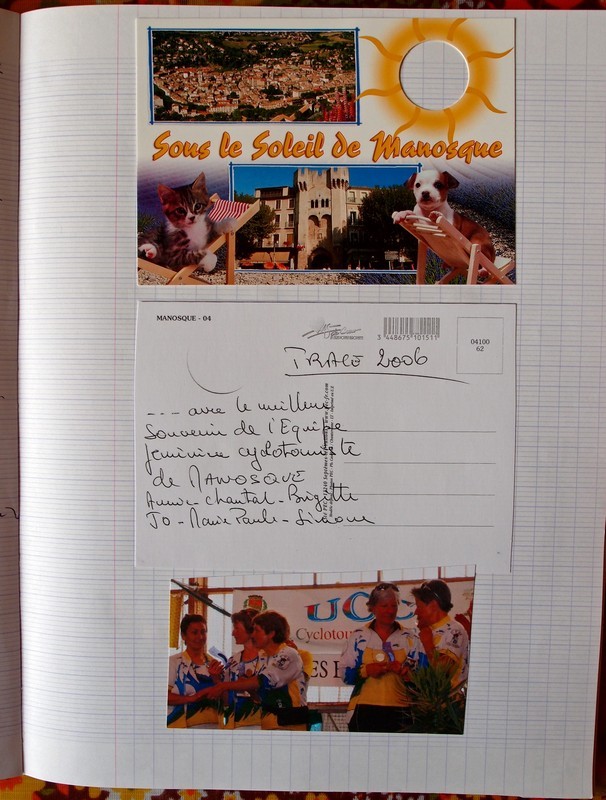 Sous le Soleil de Manosque
MANOSQUE - 04
3 448675 101511
04100
62
TRACE 2006
--- avec le meilleur
Souvenir de l'Equipe
féminine cyclotouriste
de MANOSQUE
Annie-Chantal-Brigitte
JO-Marie Paule-Simone
Cyclotou
ES